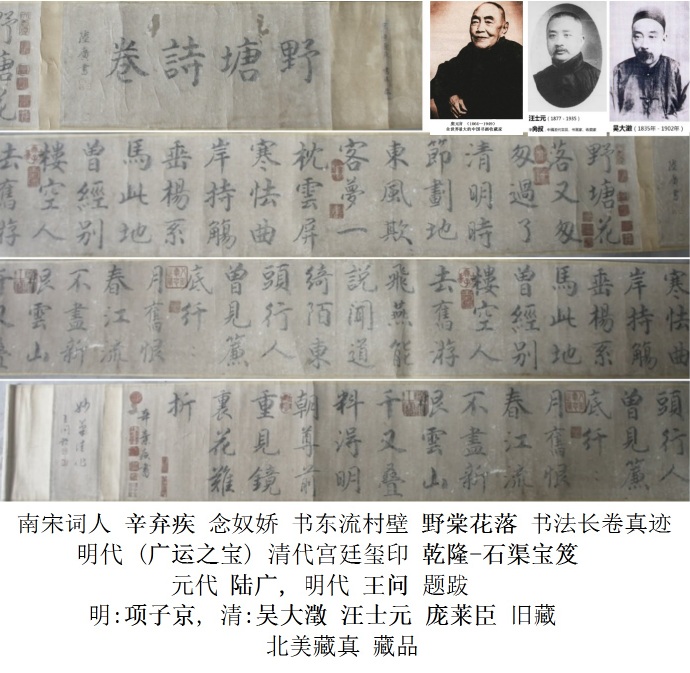 野塘詩卷
陸廣書
野塘花
全世界最大的中国书画收藏家
汪士元（1877 - 1935）
吴大澂（1835年 - 1902年）
陸廣書
野塘花
落又匆
匆過了
清明時
節劃地
東風欺
客夢一
枕雲屏
寒怯曲
岸持觴
垂楊系
馬此地
曾經別
樓空人
去舊游
寒怯曲
岸持觴
垂楊系
馬此地
曾經別
樓空人
去舊游
飛燕能
說聞道
綺陌東
頭行人
曾見簾
底纤
月舊恨
春江流
不盡新
恨雲山
千又疊
頭行人
曾見簾
底纤
月舊恨
春江流
不盡新
恨雲山
千又疊
料得明
朝尊前
重見鏡
裏花難
折
弃疾書
南宋词人 辛弃疾 念奴娇 书东流村壁 野棠花落 书法长卷真迹
明代（广运之宝）清代宫廷玺印 乾隆-石渠宝笈
元代 陆广, 明代 王问 题跋
明:项子京, 清:吴大澂 汪士元 庞莱臣 旧藏
北美藏真 藏品